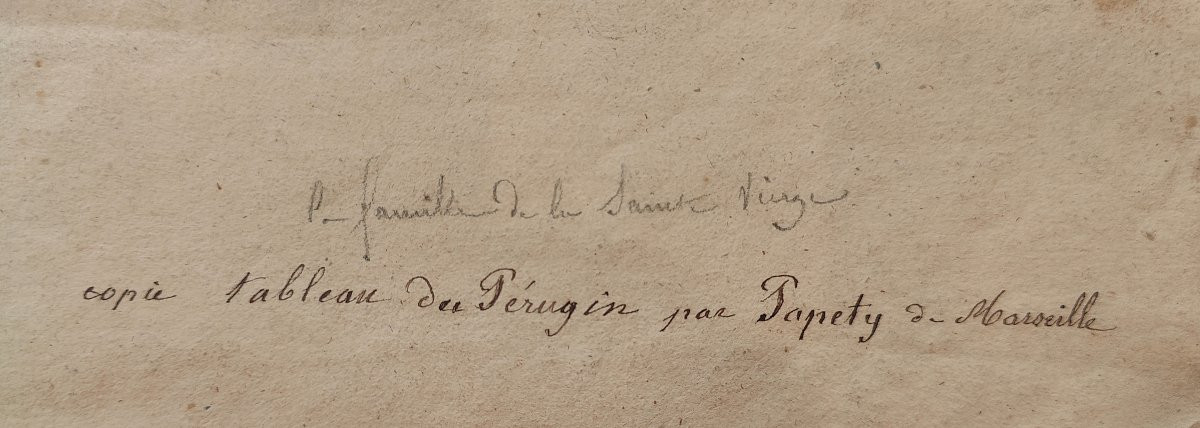 La famille de la Sainte Vierge
copie tableau du Pérugin par Papety de Marseille